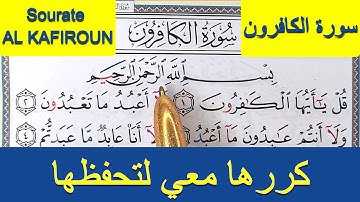 Sourate
AL KAFIROUN
سورة الكافرون
سُورَةُ الكَافِرُونَ
بِسْمِ اللَّهِ الرَّحْمَٰنِ الرَّحِيمِ
قُلْ يَٰٓأَيُّهَا ٱلْكَٰفِرُونَ ١ لَآ أَعْبُدُ مَا تَعْبُدُونَ ٢
وَلَآ أَنتُمْ عَٰبِدُونَ مَآ أَعْبُدُ ٣ وَلَآ أَنَا۠ عَابِدٌ مَّا عَبَدتُّمْ ٤
كررها معي لتحفظها